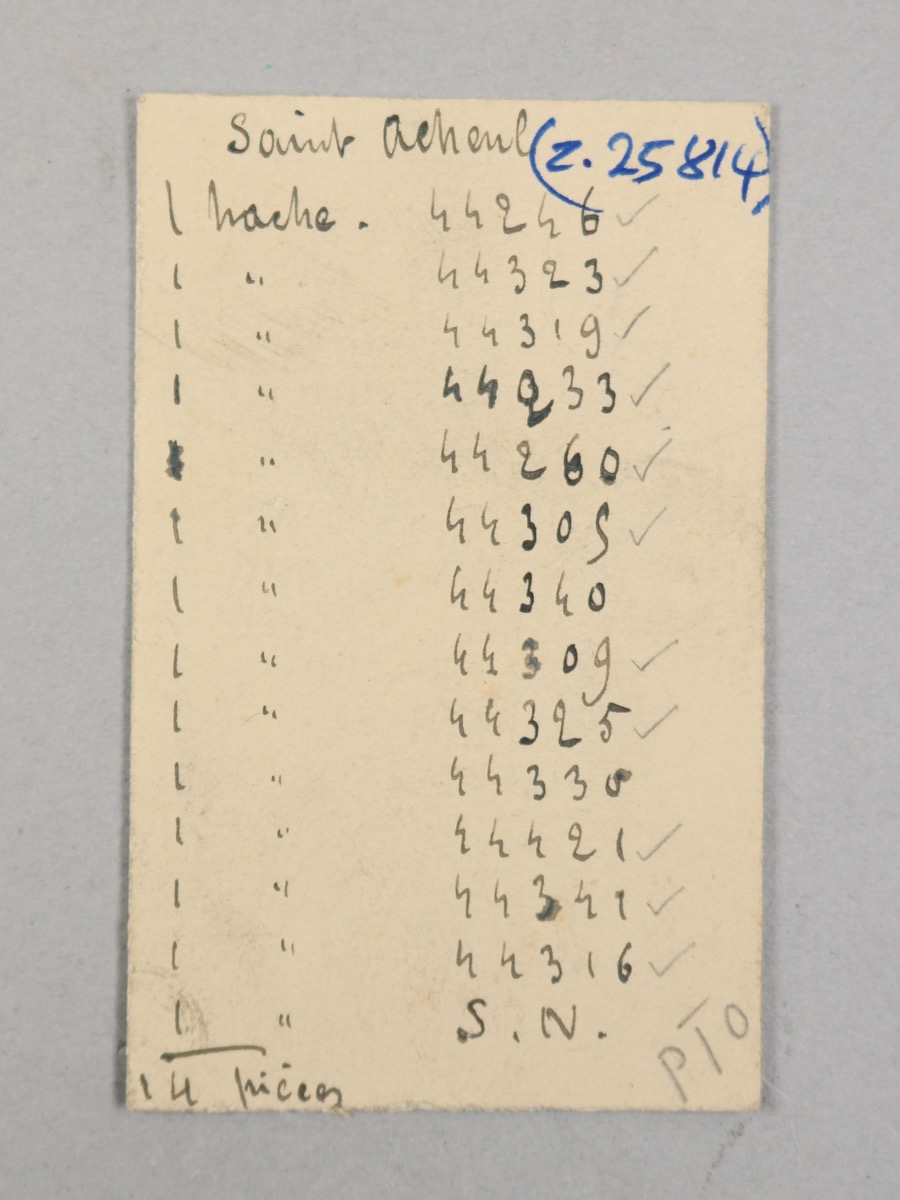 Saint Acheul (Z. 25814)
1 hache. 44246 ✓
1 " 44323 ✓
1 " 44319 ✓
1 " 44233 ✓
1 " 44260 ✓
1 " 44305 ✓
1 " 44340
1 " 44309 ✓
1 " 44325 ✓
1 " 44330
1 " 44421 ✓
1 " 44341 ✓
1 " 44316 ✓
1 " S.N.
14 pièces
PTO